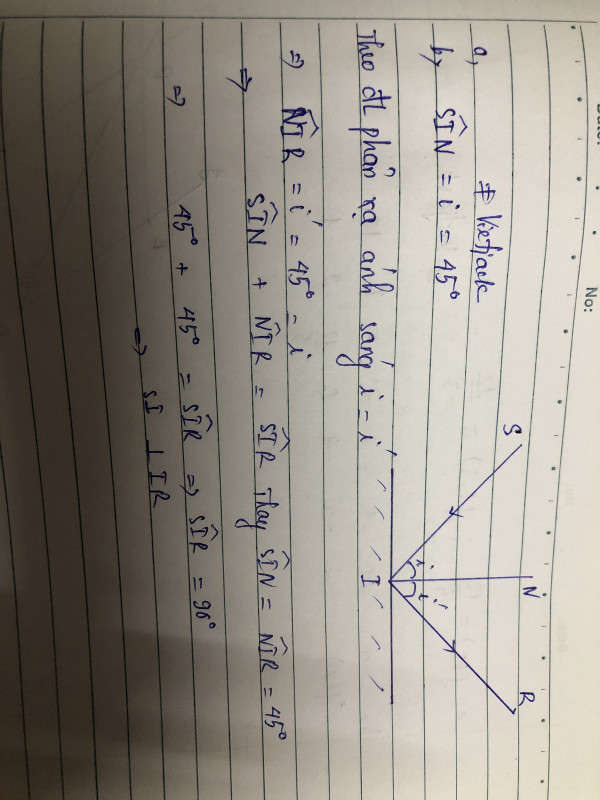 No:
a, # Vietjack
b, SÎN = i = 45°
Theo đl phản xạ ánh sáng i = i'
⇒ NÎR = i' = 45° = i
⇒ SÎN + NÎR = SÎR Thay SÎN = NÎR = 45°
⇒ 45° + 45° = SÎR ⇒ SÎR = 90°
⇒ SI ⊥ IR
S N R
i i'
I